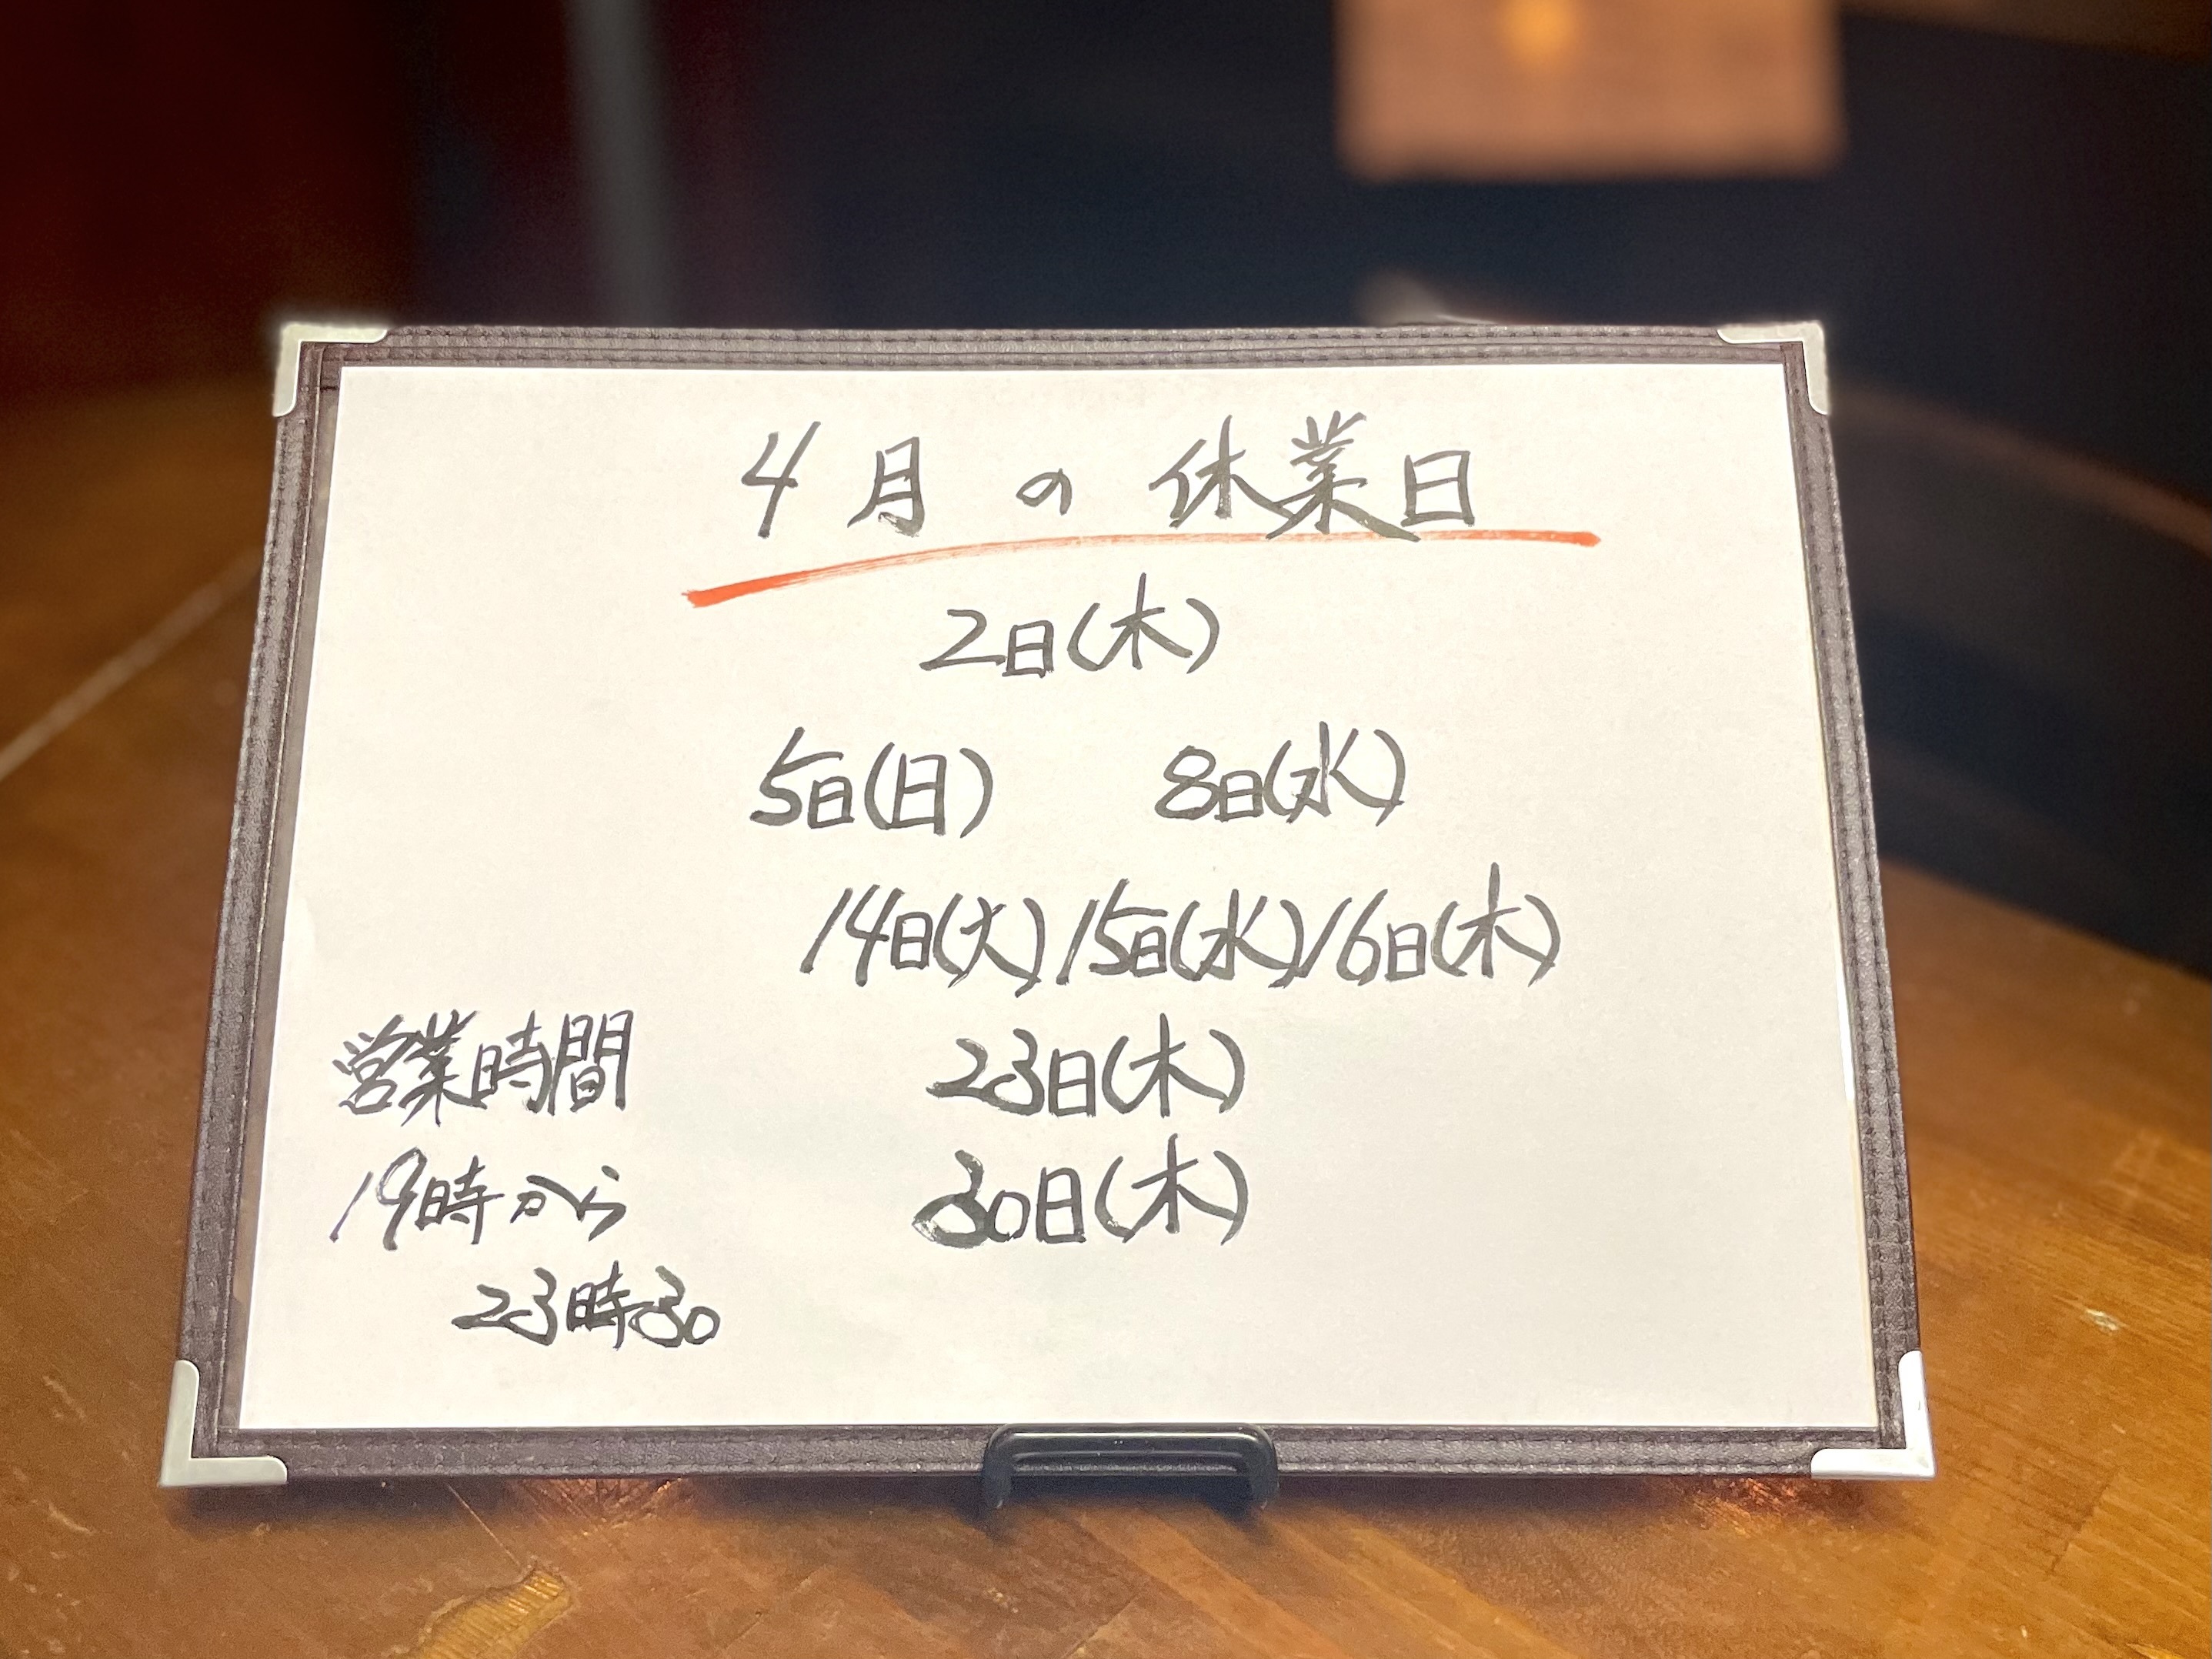 4月の休業日
2日(木)
5日(日) 8日(水)
14日(火) 15日(水) 16日(木)
23日(木)
30日(木)
営業時間
19時から
23時30